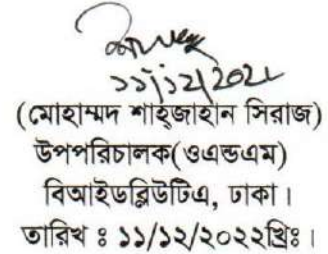 ১১/১২/202২
(মোহাম্মদ শাহজাহান সিরাজ)
উপপরিচালক(ওএন্ডএম)
বিআইডব্লিউটিএ, ঢাকা।
তারিখ ঃ ১১/১২/২০২২খ্রিঃ।